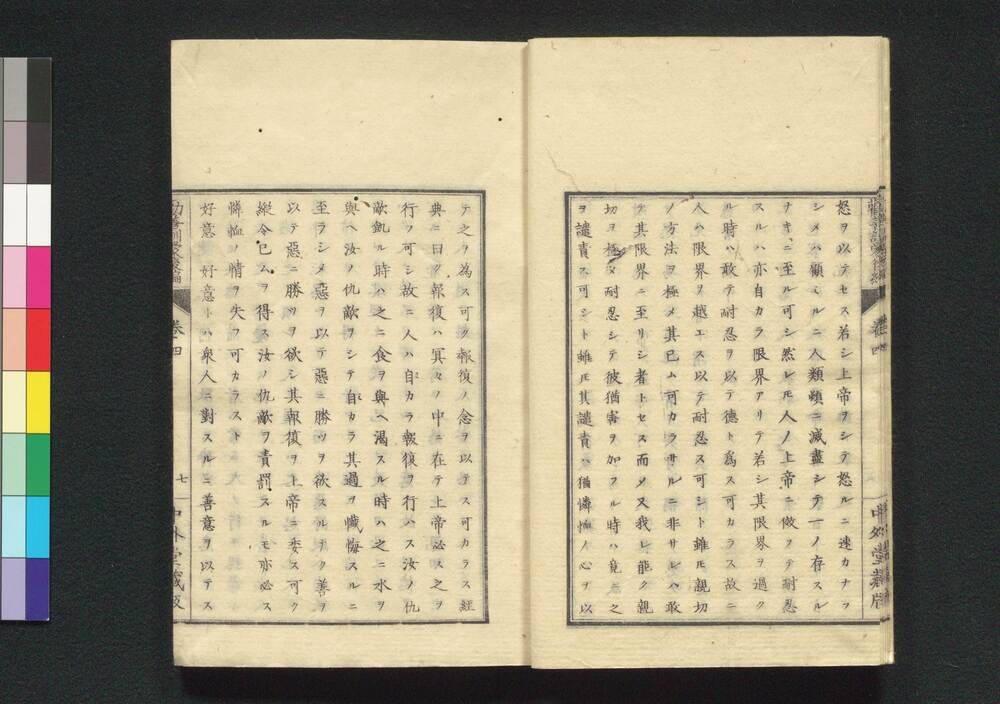 怒ヲ以テセス若シ上帝ヲシテ怒ルニ速カナラ
シメハ顧ミルニ人類頬ニ滅盡シテ一ノ存スル
ナキニ至ル可シ然レ𪜈人ノ上帝ニ倣フテ耐忍
スルハ亦自カラ限界アリテ若シ其限界ヲ過ク
ル時ハ敢テ耐忍ヲ以テ德ト為ス可カラス故ニ
人ハ限界ヲ越エス以テ耐忍ス可シト雖𪜈親切
ノ方法ヲ極メ其已ム可カラサルニ非サレハ敢
テ其限界ニ至リシ者トセス而メ又我レ能ク親
切ヲ極メ耐忍シテ彼猶害ヲ加フル時ハ竟ニ之
ヲ譴責ス可シト雖𪜈其譴責ハ猶憐恤ノ心ヲ以
卷四
テ之ヲ為ス可ク報復ノ念ヲ以テス可カラス經
典ニ曰ク報復ハ冥々ノ中ニ在テ上帝必ス之ヲ
行フ可シ故ニ人ハ自カラ報復ヲ行ハス汝ノ仇
敵飢ル時ハ之ニ食ヲ與ヘ渴スル時ハ之ニ水ヲ
與ヘ汝ノ仇敵ヲシテ自カラ其過ヲ懺悔スルニ
至ラシメ惡ヲ以テ惡ニ勝ツヲ欲スルナク善ヲ
以テ惡ニ勝ツヲ欲シ其報復ヲ上帝ニ委ス可ク
縱令已ムヲ得ス汝ノ仇敵ヲ責罰スルモ亦必ス
憐恤ノ情ヲ失フ可カラスト
好意　好意トハ衆人ニ對スルニ善意ヲ以テス
卷四
七